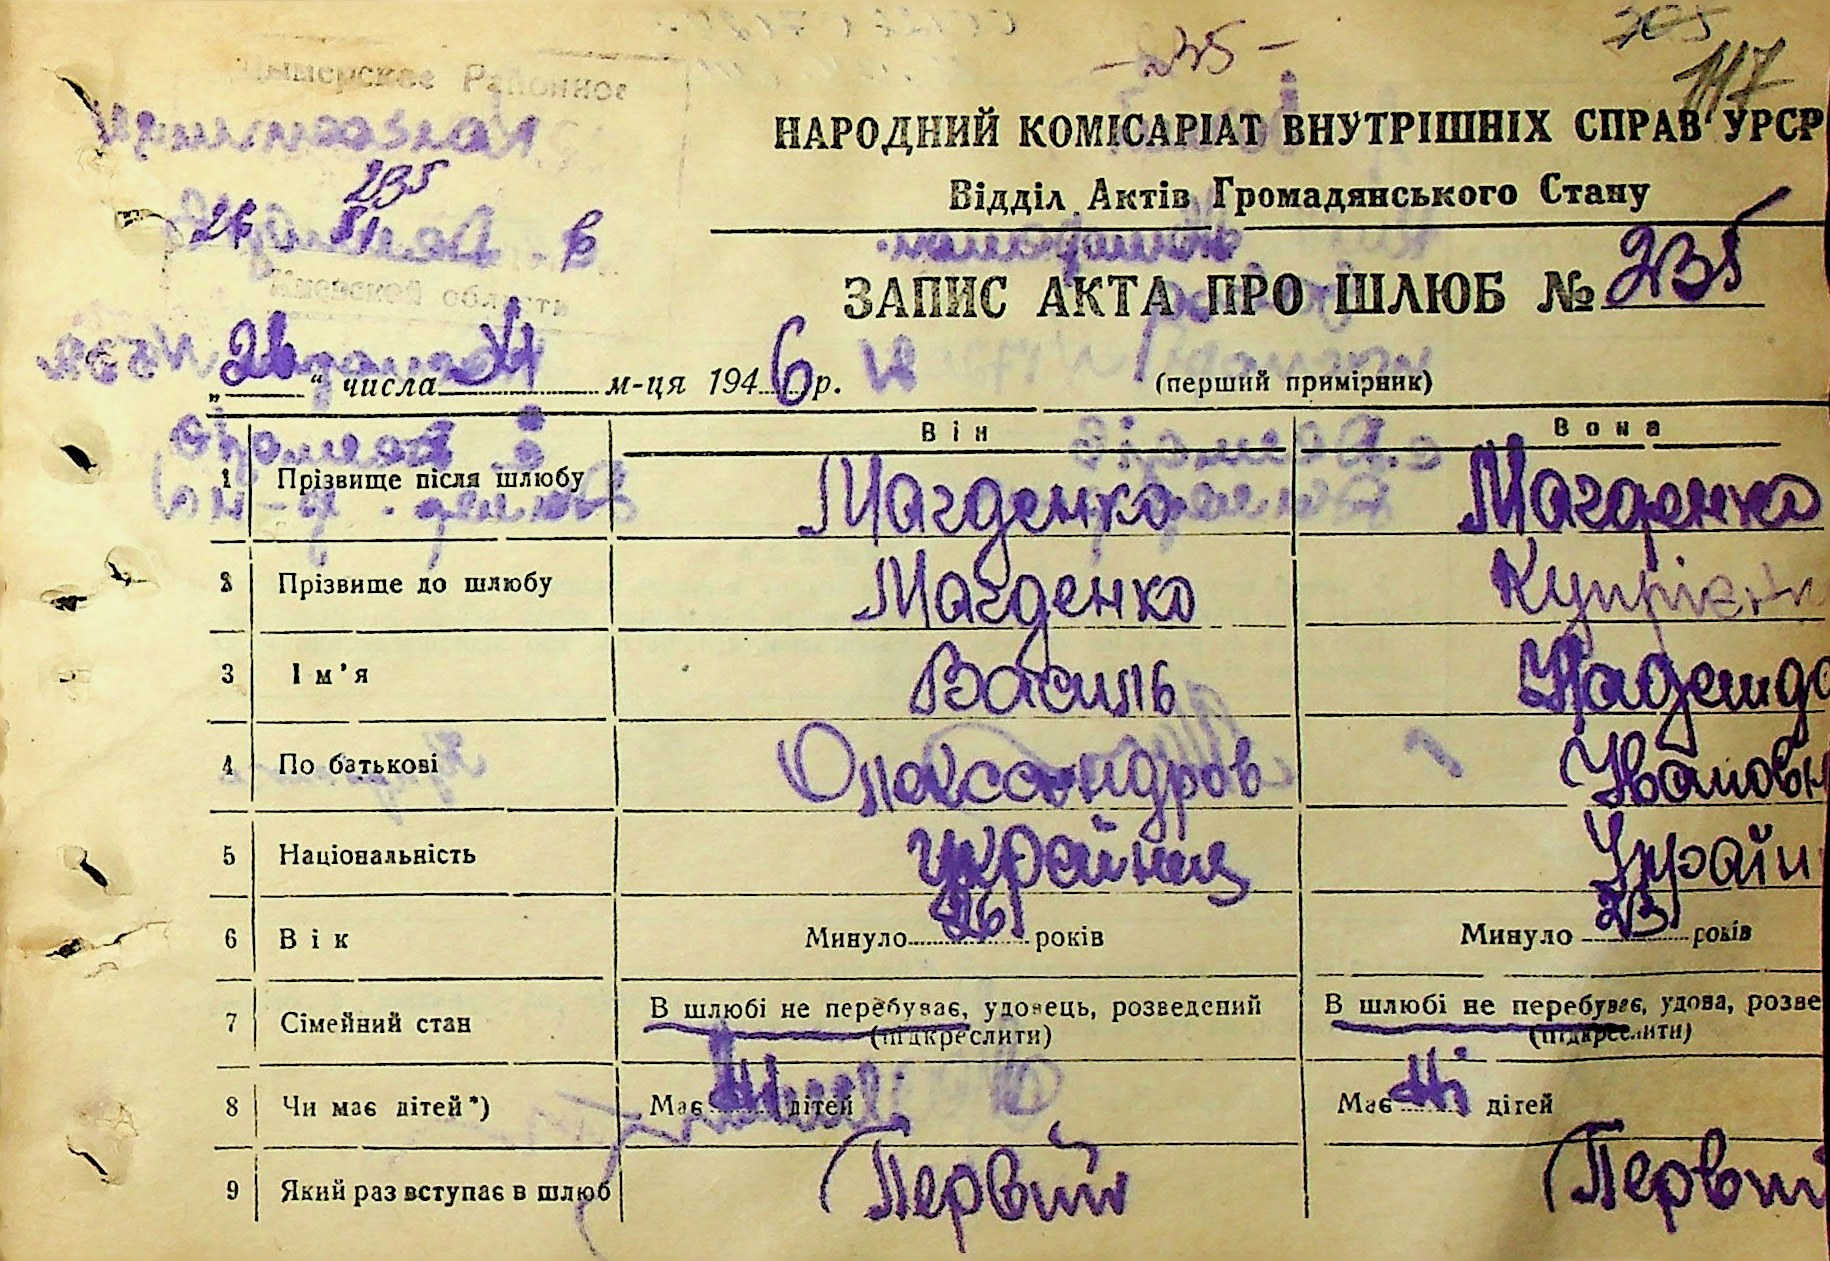 -235-
305
117
Дымерское Районное
235
26 XI 6
Киевской области
НАРОДНИЙ КОМІСАРІАТ ВНУТРІШНІХ СПРАВ УРСР
Відділ Актів Громадянського Стану
ЗАПИС АКТА ПРО ШЛЮБ № 235
„26“ числа XI м-ця 1946 р.
(перший примірник)
Він Вона
1 Прізвище після шлюбу Магденко Магденко
2 Прізвище до шлюбу Магденко Купрієн
3 Ім'я Василь Надежда
4 По батькові Олександров Ивановн
5 Національність українец Україн
6 Вік Минуло 26 років Минуло 23 років
7 Сімейний стан В шлюбі не перебуває, удовець, розведений В шлюбі не перебуває, удова, розве
(підкреслити) (підкреслити)
8 Чи має дітей*) Має ні дітей Має ні дітей
9 Який раз вступає в шлюб Первий Первий